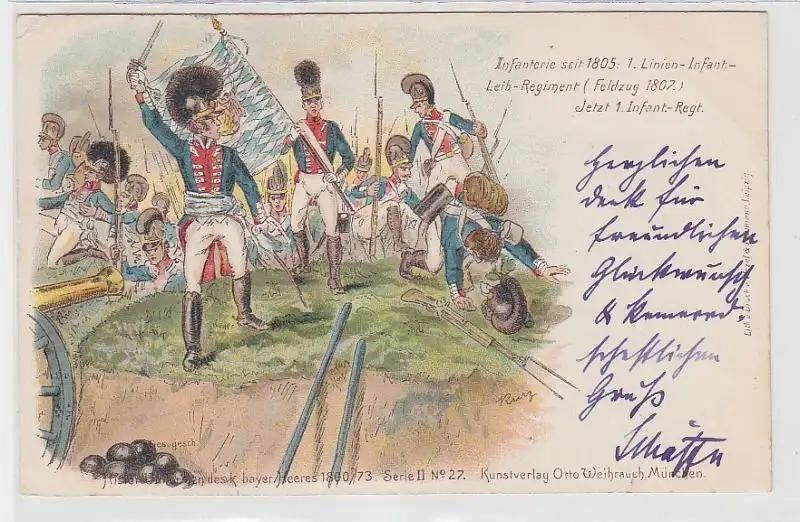 Infanterie seit 1805: 1. Linien-Infant.-
Leib-Regiment (Feldzug 1807.)
Jetzt 1. Infant.-Regt.
Herzlichen
Dank für
freundlichen
Glückwunsch
& kamerad-
schaftlichen
Gruß
Kurz
Ges. gesch.
des K. bayer. Heeres 1800/73. Serie II No 27. Kunstverlag Otto Weihrauch, München.
Lith. & Druck Leipzig.